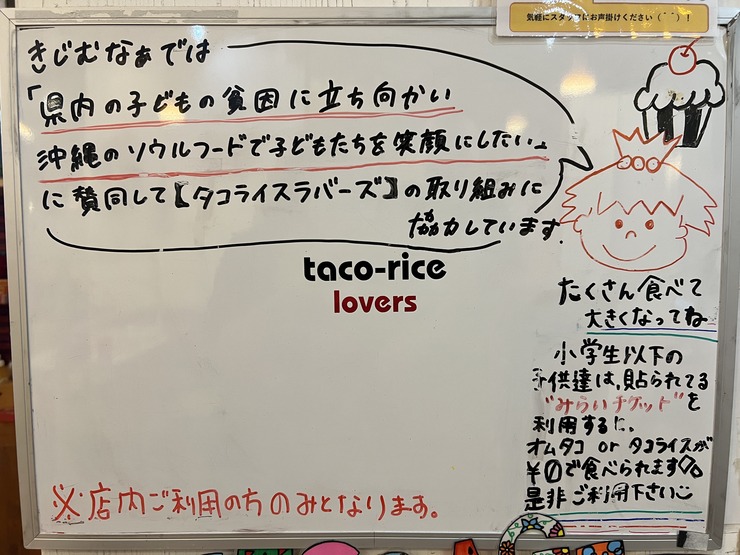 気軽にスタッフにお声掛けください(^^)！
きじむなぁでは
「県内の子どもの貧困に立ち向かい
沖縄のソウルフードで子どもたちを笑顔にしたい」
に賛同して【タコライスラバーズ】の取り組みに
協力しています。
taco-rice
lovers
たくさん食べて
大きくなってね
小学生以下の
子供達は、貼られてる
"みらいチケット"を
利用すると、
オムタコ or タコライスが
¥0で食べられます
是非ご利用下さい
※店内ご利用の方のみとなります。